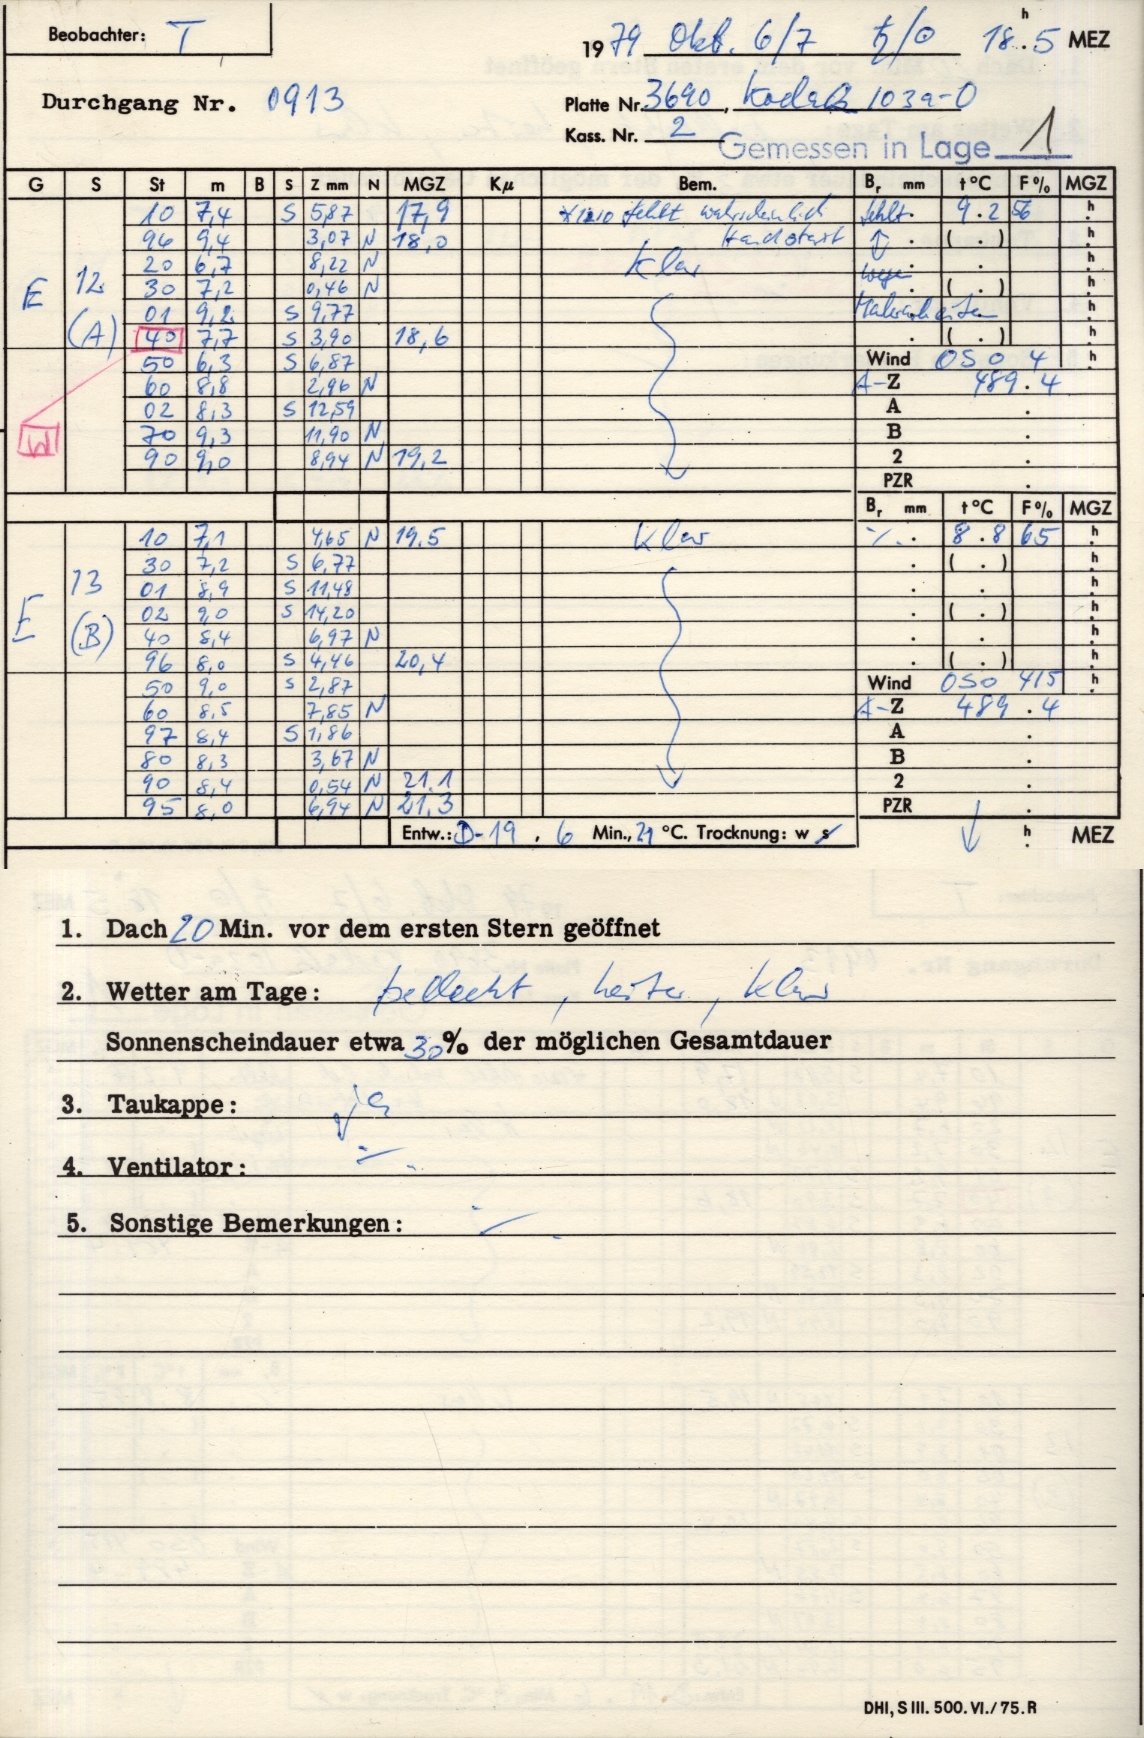 Beobachter: T
1979 Okt. 6/7 ♄/☉ 18h.5 MEZ
Durchgang Nr. 0913
Platte Nr. 3690, Kodak 103a-O
Kass. Nr. 2
Gemessen in Lage 1
G S St m B S Z mm N MGZ Kμ Bem. Br mm t°C F% MGZ
E 12 (A)
10 7,4 S 5,87 17,9 fehlt wahrscheinlich fehlt. 9.2 56 h
96 9,4 3,07 N 18,0 Handstart . ( . ) h
20 6,7 8,22 N klar . . h
30 7,2 0,46 N wegen . ( . ) h
01 9,2 S 9,77 h
40 7,7 S 3,90 18,6 . ( . ) h
50 6,3 S 6,87 Wind OSO 4 h
60 8,8 2,96 N A-Z 489.4
02 8,3 S 12,59 A .
70 9,3 11,90 N B .
90 9,0 8,94 N 19,2 2 .
PZR .
W
Br mm t°C F% MGZ
E 13 (B)
10 7,1 4,65 N 19.5 klar ·/. . 8.8 65 h
30 7,2 S 6,77 . ( . ) h
01 8,9 S 11,48 . . h
02 9,0 S 14,20 . ( . ) h
40 8,4 6,97 N . . h
96 8,0 S 4,46 20,4 . ( . ) h
50 9,0 S 2,87 Wind OSO 4/5 h
60 8,5 7,85 N A-Z 489.4
97 8,4 S 1,86 A .
80 8,3 3,67 N B .
90 8,4 0,54 N 21.1 2 .
95 8,0 6,94 N 21.3 PZR .
Entw.: D-19 . 6 Min., 21 °C. Trocknung: w s h MEZ
1. Dach 20 Min. vor dem ersten Stern geöffnet
2. Wetter am Tage: bedeckt, heiter, klar
Sonnenscheindauer etwa 30% der möglichen Gesamtdauer
3. Taukappe: ja
4. Ventilator: ·/.
5. Sonstige Bemerkungen: ·/.
DHI, S III. 500. VI./75. R